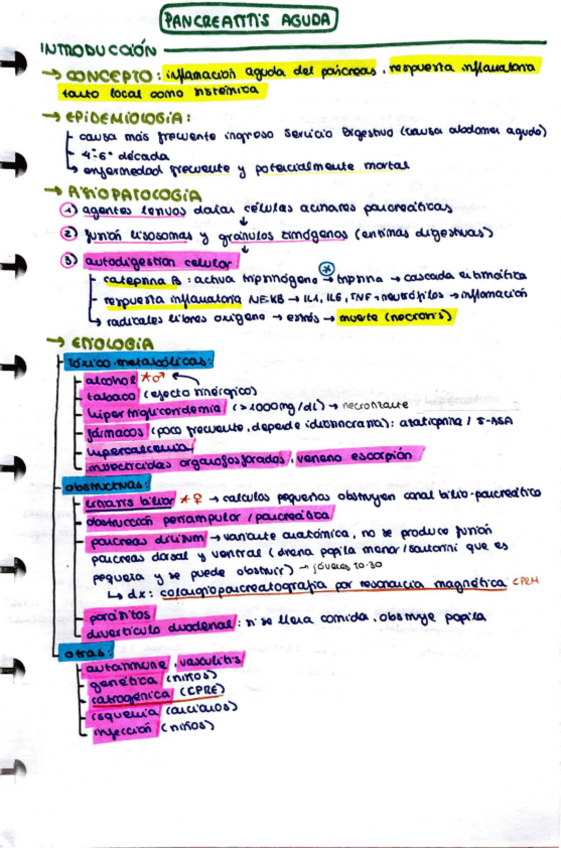 PANCREATITIS AGUDA
INTRODUCCIÓN
→ CONCEPTO: inflamación aguda del páncreas, respuesta inflamatoria
tanto local como sistémica
→ EPIDEMIOLOGÍA:
causa más frecuente ingreso Servicio Digestivo (causa abdomen agudo)
4ª-6ª década
enfermedad frecuente y potencialmente mortal
→ FISIOPATOLOGÍA
1) agentes lesivos dañan células acinares pancreáticas
2) fusión lisosomas y gránulos zimógenos (enzimas digestivas)
3) autodigestión celular
catepsina B: activa tripsinógeno → tripsina → cascada enzimática
respuesta inflamatoria NFKB → IL1, IL6, TNF + neutrófilos → inflamación
radicales libres oxígeno → estrés → muerte (necrosis)
→ ETIOLOGÍA
tóxico-metabólicas:
alcohol *♂
tabaco (efecto sinérgico)
hipertrigliceridemia (>1000mg/dL) → necrotizante
fármacos (poco frecuente, depende idiosincrasia): azatioprina / 5-ASA
hipercalcemia
insecticidas organofosforados, veneno escorpión
obstructivas:
litiasis biliar *♀ → cálculos pequeños obstruyen canal bilio-pancreático
obstrucción periampular / pancreática
páncreas divisum → variante anatómica, no se produce fusión
páncreas dorsal y ventral (drena papila menor / santorini que es
pequeña y se puede obstruir) → jóvenes 20-30
↳ dx: colangiopancreatografía por resonancia magnética CPRM
parásitos
divertículo duodenal: si se llena comida, obstruye papila
otras:
autoinmune, vasculitis
genética (niños)
iatrogénica (CPRE)
isquemia (ancianos)
infección (niños)